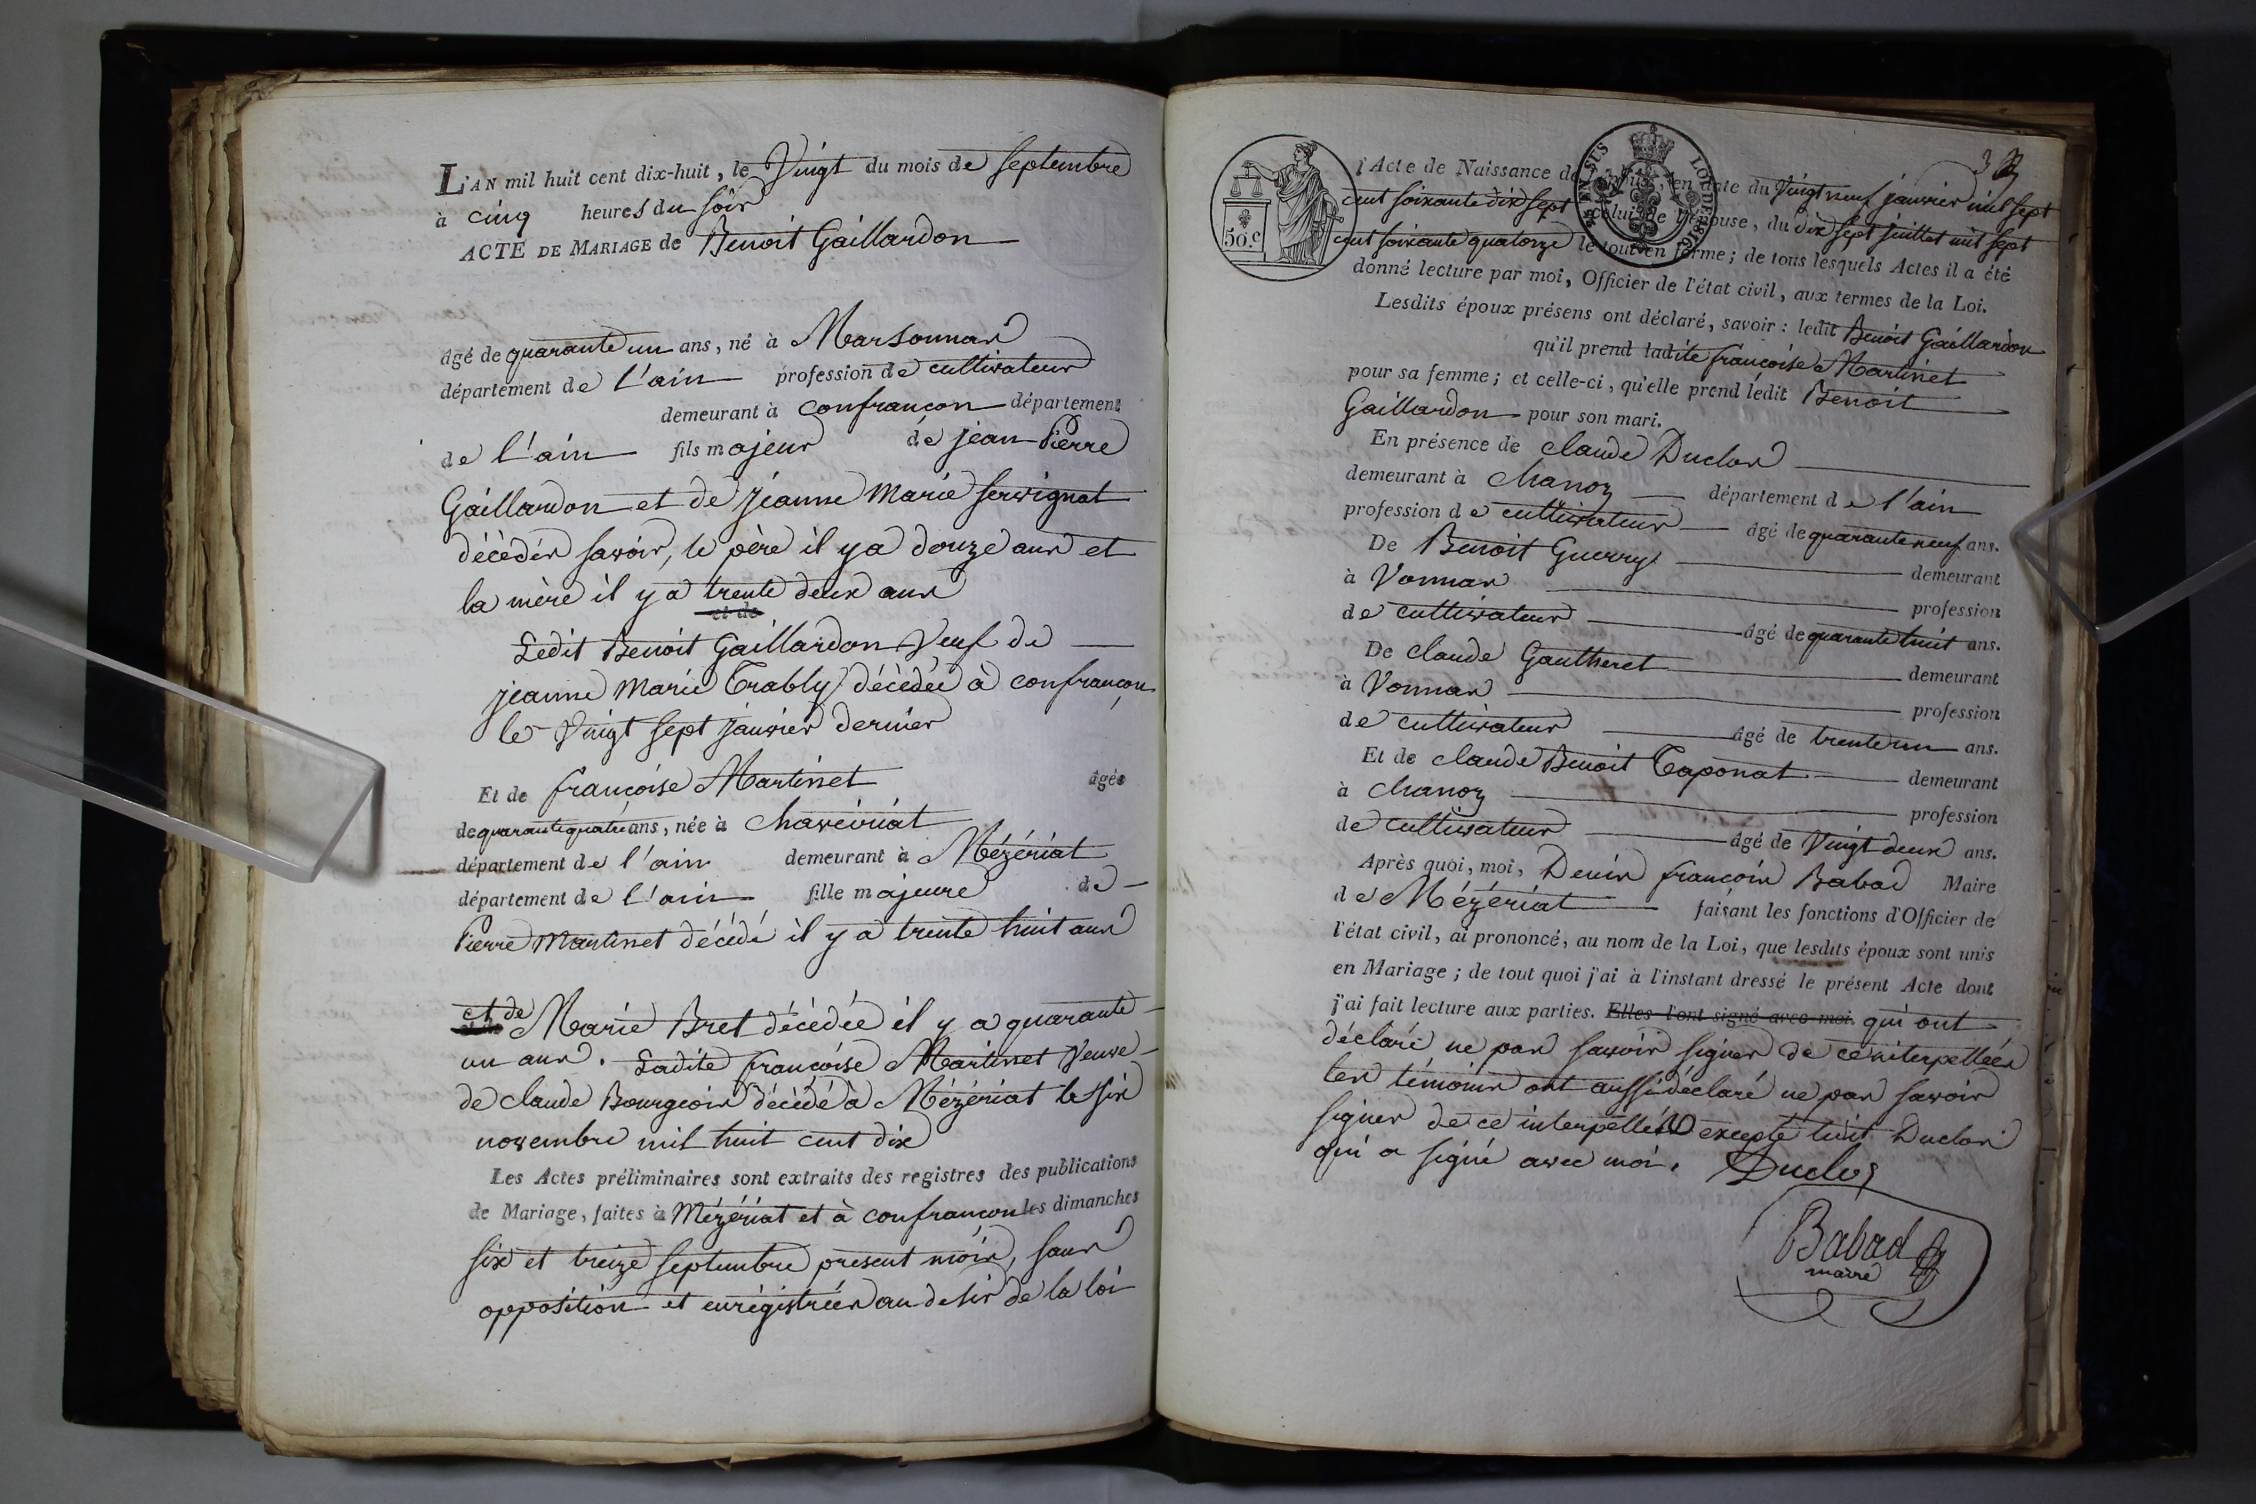 L'AN mil huit cent dix-huit, le Vingt du mois de septembre
à cinq heures du soir
ACTE DE MARIAGE de Benoit Gaillardon
âgé de quarante un ans, né à Marsonnas
département de l'ain profession de cultivateur
demeurant à confrançon département
de l'ain fils majeur de jean Pierre
Gaillardon et de jeanne Marie servignat
décédés savoir, le père il y a douze ans et
la mère il y a trente deux ans
et de
Ledit Benoit Gaillardon Veuf de
jeanne Marie Trably décédée à confrançon
le Vingt sept janvier dernier
Et de françoise Martinet âgée
de quarante quatre ans, née à chaveiriat
département de l'ain demeurant à Mézériat
département de l'ain fille majeure de
Pierre Martinet décédé il y a trente huit ans
et de Marie Bret décédée il y a quarante
un ans. Ladite françoise Martinet Veuve
de claude Bourgeois décédé à Mézériat le six
novembre mil huit cent dix
Les Actes préliminaires sont extraits des registres des publications
de Mariage, faites à Mézériat et à confrançon les dimanches
six et treize septembre present mois, sans
opposition et enrégistrées au desir de la loi
3
50.c
EN SUS LOI DE 1816
l'Acte de Naissance de en date du Vingt neuf janvier mil sept
cent soixante dix sept celui de l'épouse, du dix sept juillet mil sept
cent soixante quatorze le tout en forme; de tous lesquels Actes il a été
donné lecture par moi, Officier de l'état civil, aux termes de la Loi.
Lesdits époux présens ont déclaré, savoir: ledit Benoit Gaillardon
qu'il prend ladite françoise Martinet
pour sa femme; et celle-ci, qu'elle prend ledit Benoit
Gaillardon pour son mari.
En présence de claude Duclos
demeurant à chanoz département de l'ain
profession de cultivateur âgé de quarante neuf ans.
De Benoit Guerry demeurant
à Vonnas profession
de cultivateur âgé de quarante huit ans.
De claude Gautheret demeurant
à Vonnas profession
de cultivateur âgé de trente un ans.
Et de claude Benoit Taponat demeurant
à chanoz profession
de cultivateur âgé de Vingt deux ans.
Après quoi, moi, Denis françois Babad Maire
de Mézériat faisant les fonctions d'Officier de
l'état civil, ai prononcé, au nom de la Loi, que lesdits époux sont unis
en Mariage; de tout quoi j'ai à l'instant dressé le présent Acte dont
j'ai fait lecture aux parties. Elles l'ont signé avec moi. qui ont
déclaré ne pas savoir signer de ce interpellées
les témoins ont aussi déclaré ne pas savoir
signer de ce interpellés excepté ledit Duclos
qui a signé avec moi. Duclos
Babad
maire